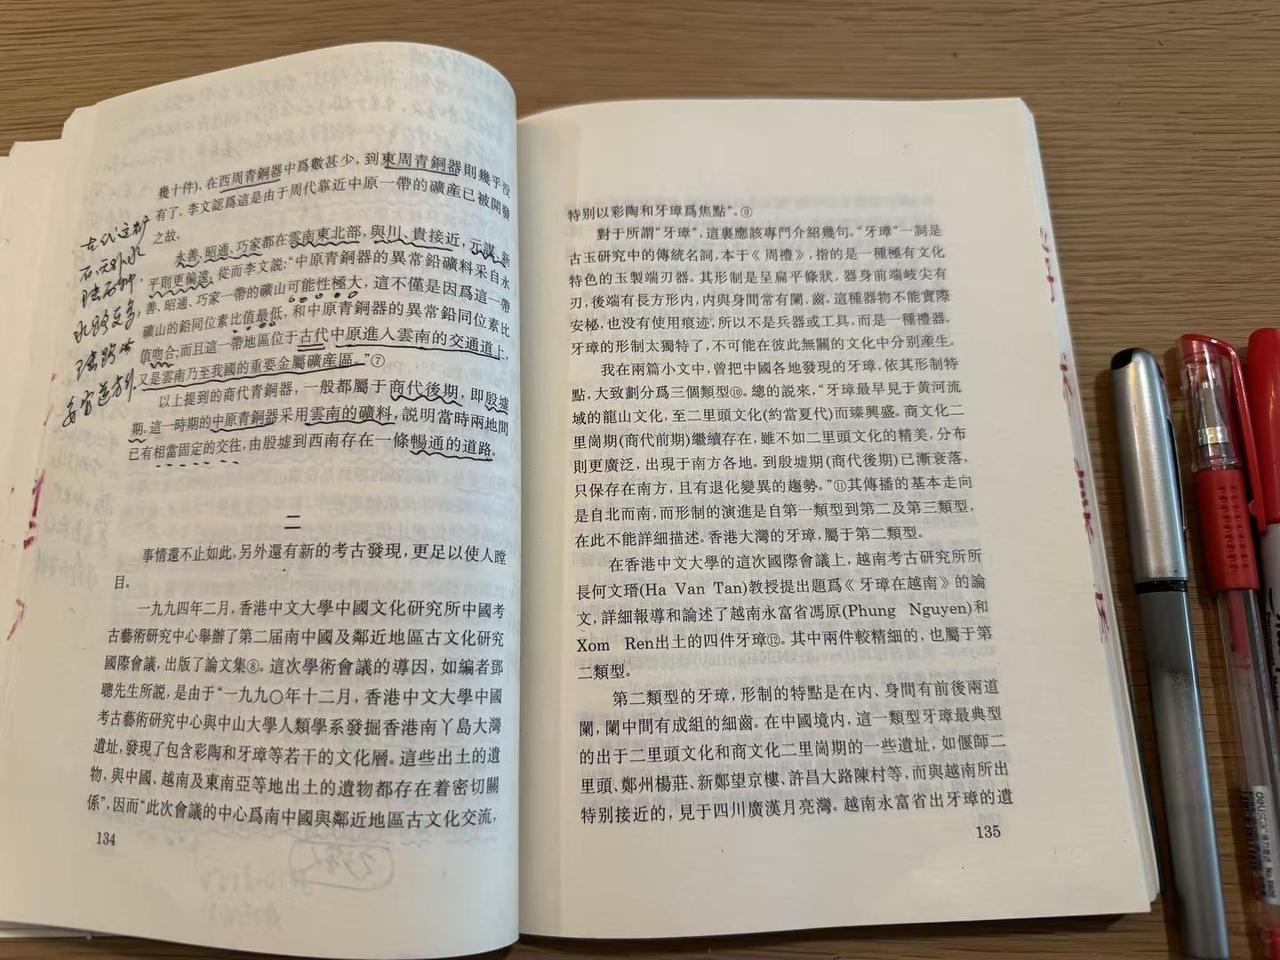 幾十件)，在西周青銅器中爲數甚少，到東周青銅器則幾乎没
有了。李文認爲這是由于周代靠近中原一帶的礦産已被開發
之故。
永善、昭通、巧家都在雲南東北部，與川、貴接近，元謀、新
平則更偏遠。從而李文説：“中原青銅器的異常鉛礦料采自永
善、昭通、巧家一帶的礦山可能性極大，這不僅是因爲這一帶
礦山的鉛同位素比值最低，和中原青銅器的異常鉛同位素比
值吻合；而且這一帶地區位于古代中原進入雲南的交通道上，
又是雲南乃至我國的重要金屬礦産區。”⑦
以上提到的商代青銅器，一般都屬于商代後期，即殷墟
期。這一時期的中原青銅器采用雲南的礦料，説明當時兩地間
已有相當固定的交往，由殷墟到西南存在一條暢通的道路。
二
事情還不止如此，另外還有新的考古發現，更足以使人瞠
目。
一九九四年二月，香港中文大學中國文化研究所中國考
古藝術研究中心舉辦了第二届南中國及鄰近地區古文化研究
國際會議，出版了論文集⑧。這次學術會議的導因，如編者鄧
聰先生所説，是由于“一九九〇年十二月，香港中文大學中國
考古藝術研究中心與中山大學人類學系發掘香港南丫島大灣
遺址，發現了包含彩陶和牙璋等若干的文化層。這些出土的遺
物，與中國、越南及東南亞等地出土的遺物都存在着密切關
係”，因而“此次會議的中心爲南中國與鄰近地區古文化交流，
134
特别以彩陶和牙璋爲焦點”。⑨
對于所謂“牙璋”，這裏應該專門介紹幾句。“牙璋”一詞是
古玉研究中的傳統名詞，本于《周禮》，指的是一種極有文化
特色的玉製端刃器。其形制是呈扁平條狀，器身前端岐尖有
刃，後端有長方形内，内與身間常有闌、齒。這種器物不能實際
安柲，也没有使用痕迹，所以不是兵器或工具，而是一種禮器。
牙璋的形制太獨特了，不可能在彼此無關的文化中分别産生。
我在兩篇小文中，曾把中國各地發現的牙璋，依其形制特
點，大致劃分爲三個類型⑩。總的説來，“牙璋最早見于黄河流
域的龍山文化，至二里頭文化(約當夏代)而臻興盛。商文化二
里崗期(商代前期)繼續存在，雖不如二里頭文化的精美，分布
則更廣泛，出現于南方各地。到殷墟期(商代後期)已漸衰落，
只保存在南方，且有退化變異的趨勢。”⑪其傳播的基本走向
是自北而南，而形制的演進是自第一類型到第二及第三類型，
在此不能詳細描述。香港大灣的牙璋，屬于第二類型。
在香港中文大學的這次國際會議上，越南考古研究所所
長何文瑨(Ha Van Tan)教授提出題爲《牙璋在越南》的論
文，詳細報導和論述了越南永富省馮原(Phung Nguyen)和
Xom Ren出土的四件牙璋⑫。其中兩件較精細的，也屬于第
二類型。
第二類型的牙璋，形制的特點是在内、身間有前後兩道
闌，闌中間有成組的細齒。在中國境内，這一類型牙璋最典型
的出于二里頭文化和商文化二里崗期的一些遺址，如偃師二
里頭、鄭州楊莊、新鄭望京樓、許昌大路陳村等，而與越南所出
特别接近的，見于四川廣漢月亮灣。越南永富省出牙璋的遺
135